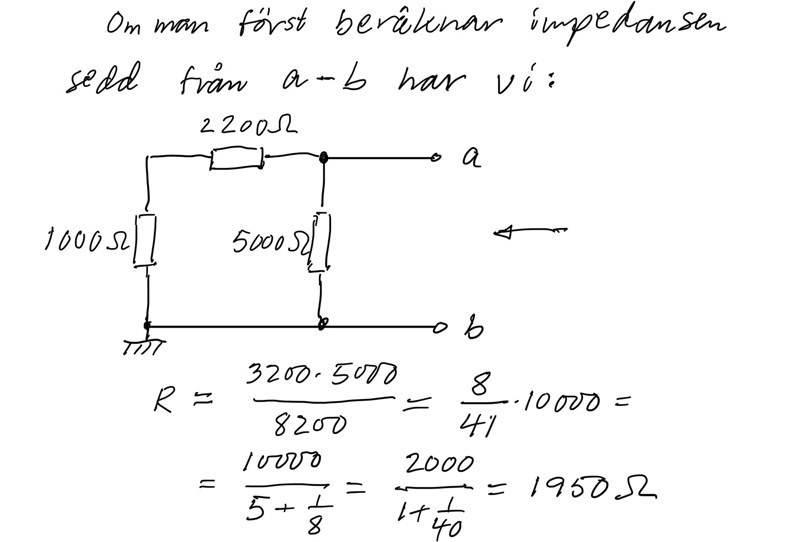 Om man först beräknar impedansen
sedd från a-b har vi:
2200Ω
a
1000Ω
5000Ω
b
R = 3200·5000/8200 = 8/41 ·10000 =
= 10000/(5+1/8) = 2000/(1+1/40) = 1950Ω